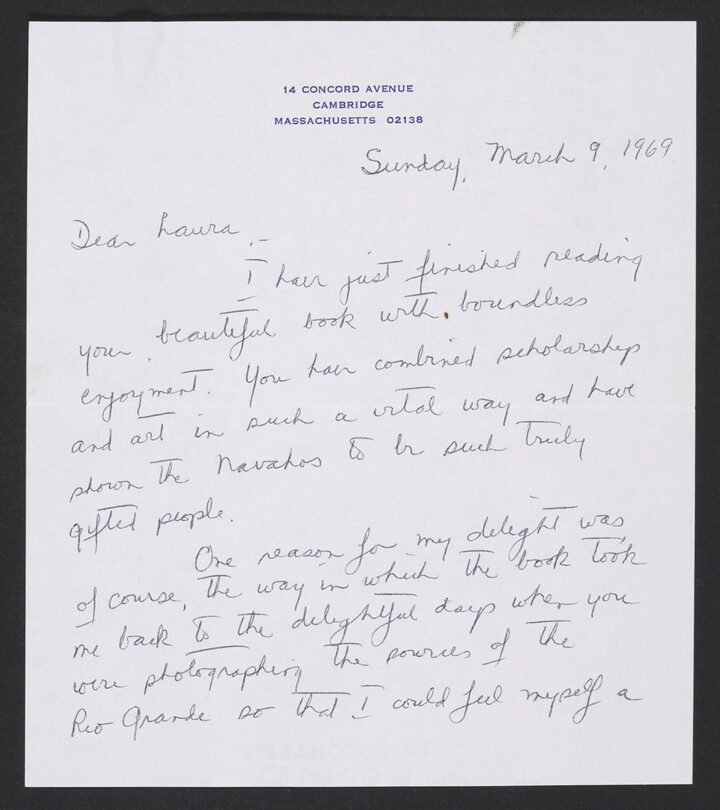 14 CONCORD AVENUE
CAMBRIDGE
MASSACHUSETTS 02138
Sunday, March 9, 1969
Dear Laura,-
I have just finished reading
your beautiful book with boundless
enjoyment. You have combined scholarship
and art in such a vital way and have
shown the Navahos to be such truly
gifted people.
One reason for my delight was,
of course, the way in which the book took
me back to the delightful days when you
were photographing the sources of the
Rio Grande so that I could feel myself a